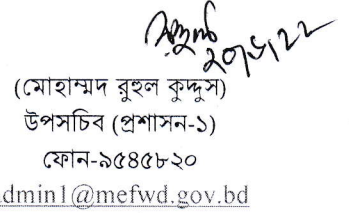 ২০/৬/২২
(মোহাম্মদ রুহুল কুদ্দুস)
উপসচিব (প্রশাসন-১)
ফোন-৯৫৪৫৮২০
dmin1@mefwd.gov.bd